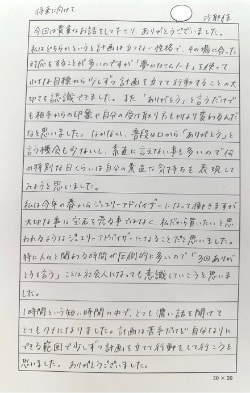 将来に向けて
今回は貴重なお話をして下さり、ありがとうございました。
私はどちらかというと計画は立てない性格で、その場に合った
対応をすることが多いのですが「夢のカルテ」を使って
小さな目標から少しずつ計画を立てて行動することの大
切さを認識できました。また「ありがとう」と言うだけで
も相手からの印象や自分の受け取り方もかなり変わるんだ
なと思いました。なかなか、普段の口から「ありがとう」と
言う機会も少ないし、素直に言えない事も多いので何
か特別な日くらいは自分の素直な気持ちを表現して
みようと思いました。
私は今年の春からジュエリーアドバイザーになって働きますが
大切な事は宝石を売る事ではなく、私だから買いたいと思
われるようなジュエリーアドバイザーになることだと思いました。
特に人と関わる時間が圧倒的に多いので「3回ありが
とうを言う」ことは社会人になっても意識していこうと思いま
した。
1時間という短い時間の中で、とても濃い話を聞けて
とてもタメになりました。計画は苦手だけど自分なりに
できる範囲で少しずつ計画を立てて行動をして行こうと
思いました。ありがとうございました。
20×20